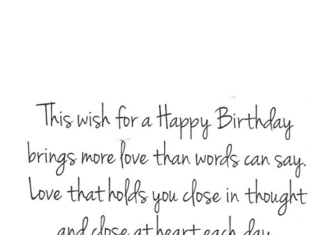 This wish for a Happy Birthday
brings more love than words can say.
Love that holds you close in thought
and close at heart each day